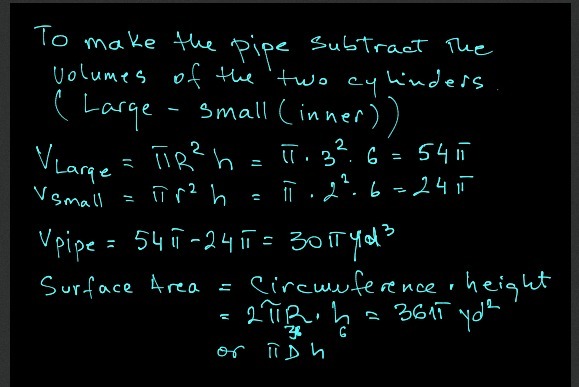 To make the pipe subtract the
volumes of the two cylinders.
(Large - small (inner))
V Large = πR² h = π · 3² · 6 = 54π
V small = πr² h = π · 2² · 6 = 24π
V pipe = 54π - 24π = 30π yd³
Surface Area = Circumference · height
= 2πR · h = 36π yd²
3 6
or πDh